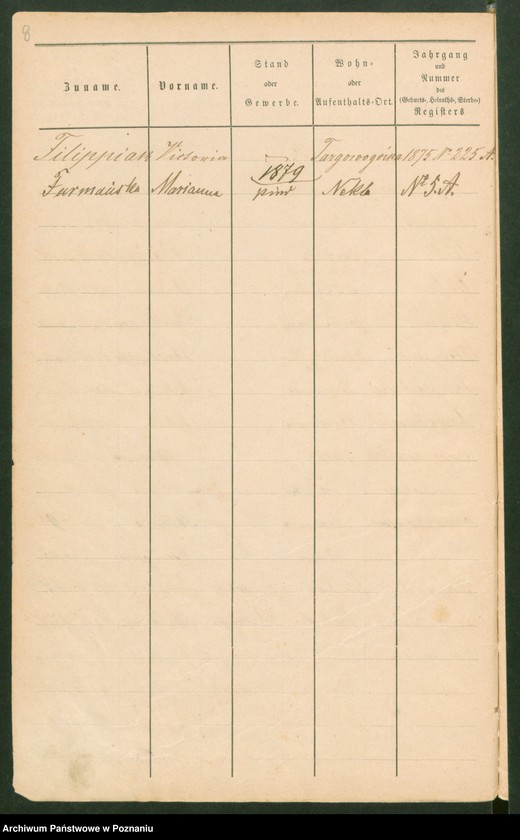 8
Zuname. Vorname. Stand oder Gewerbe. Wohn- oder Aufenthalts-Ort. Jahrgang und Nummer des (Geburts-, Heiraths-, Sterbe-) Registers
Filippiak Victoria Targowogórka 1875. No 225. A.
1879
Furmańska Marianna Nekla No 5. A.
Archiwum Państwowe w Poznaniu